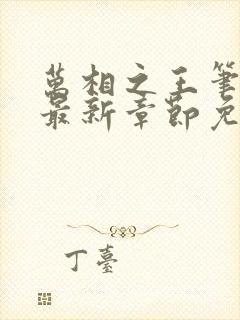 萬相之王筆
最新章節免
丁臺